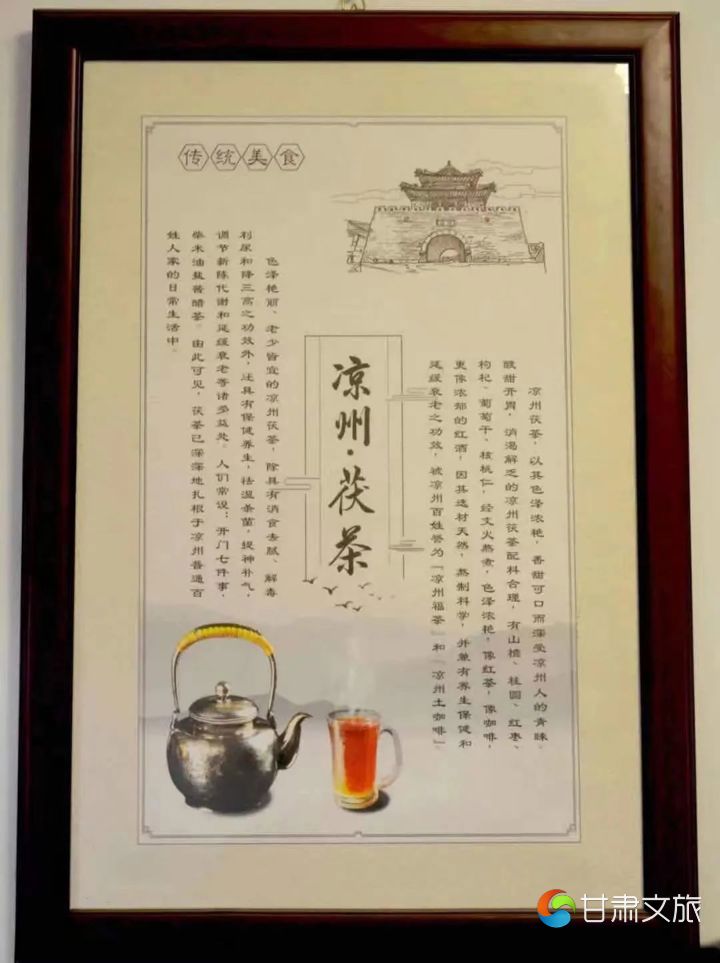 传统美食
凉州·茯茶
凉州茯茶，以其色泽浓艳，香甜可口而深受凉州人的青睐。
酸甜开胃，消渴解乏的凉州茯茶配料合理，有山楂、桂圆、红枣、
枸杞、葡萄干、核桃仁，经文火熬煮，色泽浓艳，像红茶，像咖啡，
更像浓郁的红酒，因其选材天然，熬制科学，并兼有养生保健和
延缓衰老之功效，被凉州百姓誉为“凉州福茶”和“凉州土咖啡”。
色泽艳丽、老少皆宜的凉州茯茶，除具有消食去腻、解毒
利尿和降三高之功效外，还具有保健养生，祛湿杀菌，提神补气，
调节新陈代谢和延缓衰老等诸多益处。人们常说：开门七件事，
柴米油盐酱醋茶。由此可见，茯茶已深深地扎根于凉州普通百
姓人家的日常生活中。
甘肃文旅